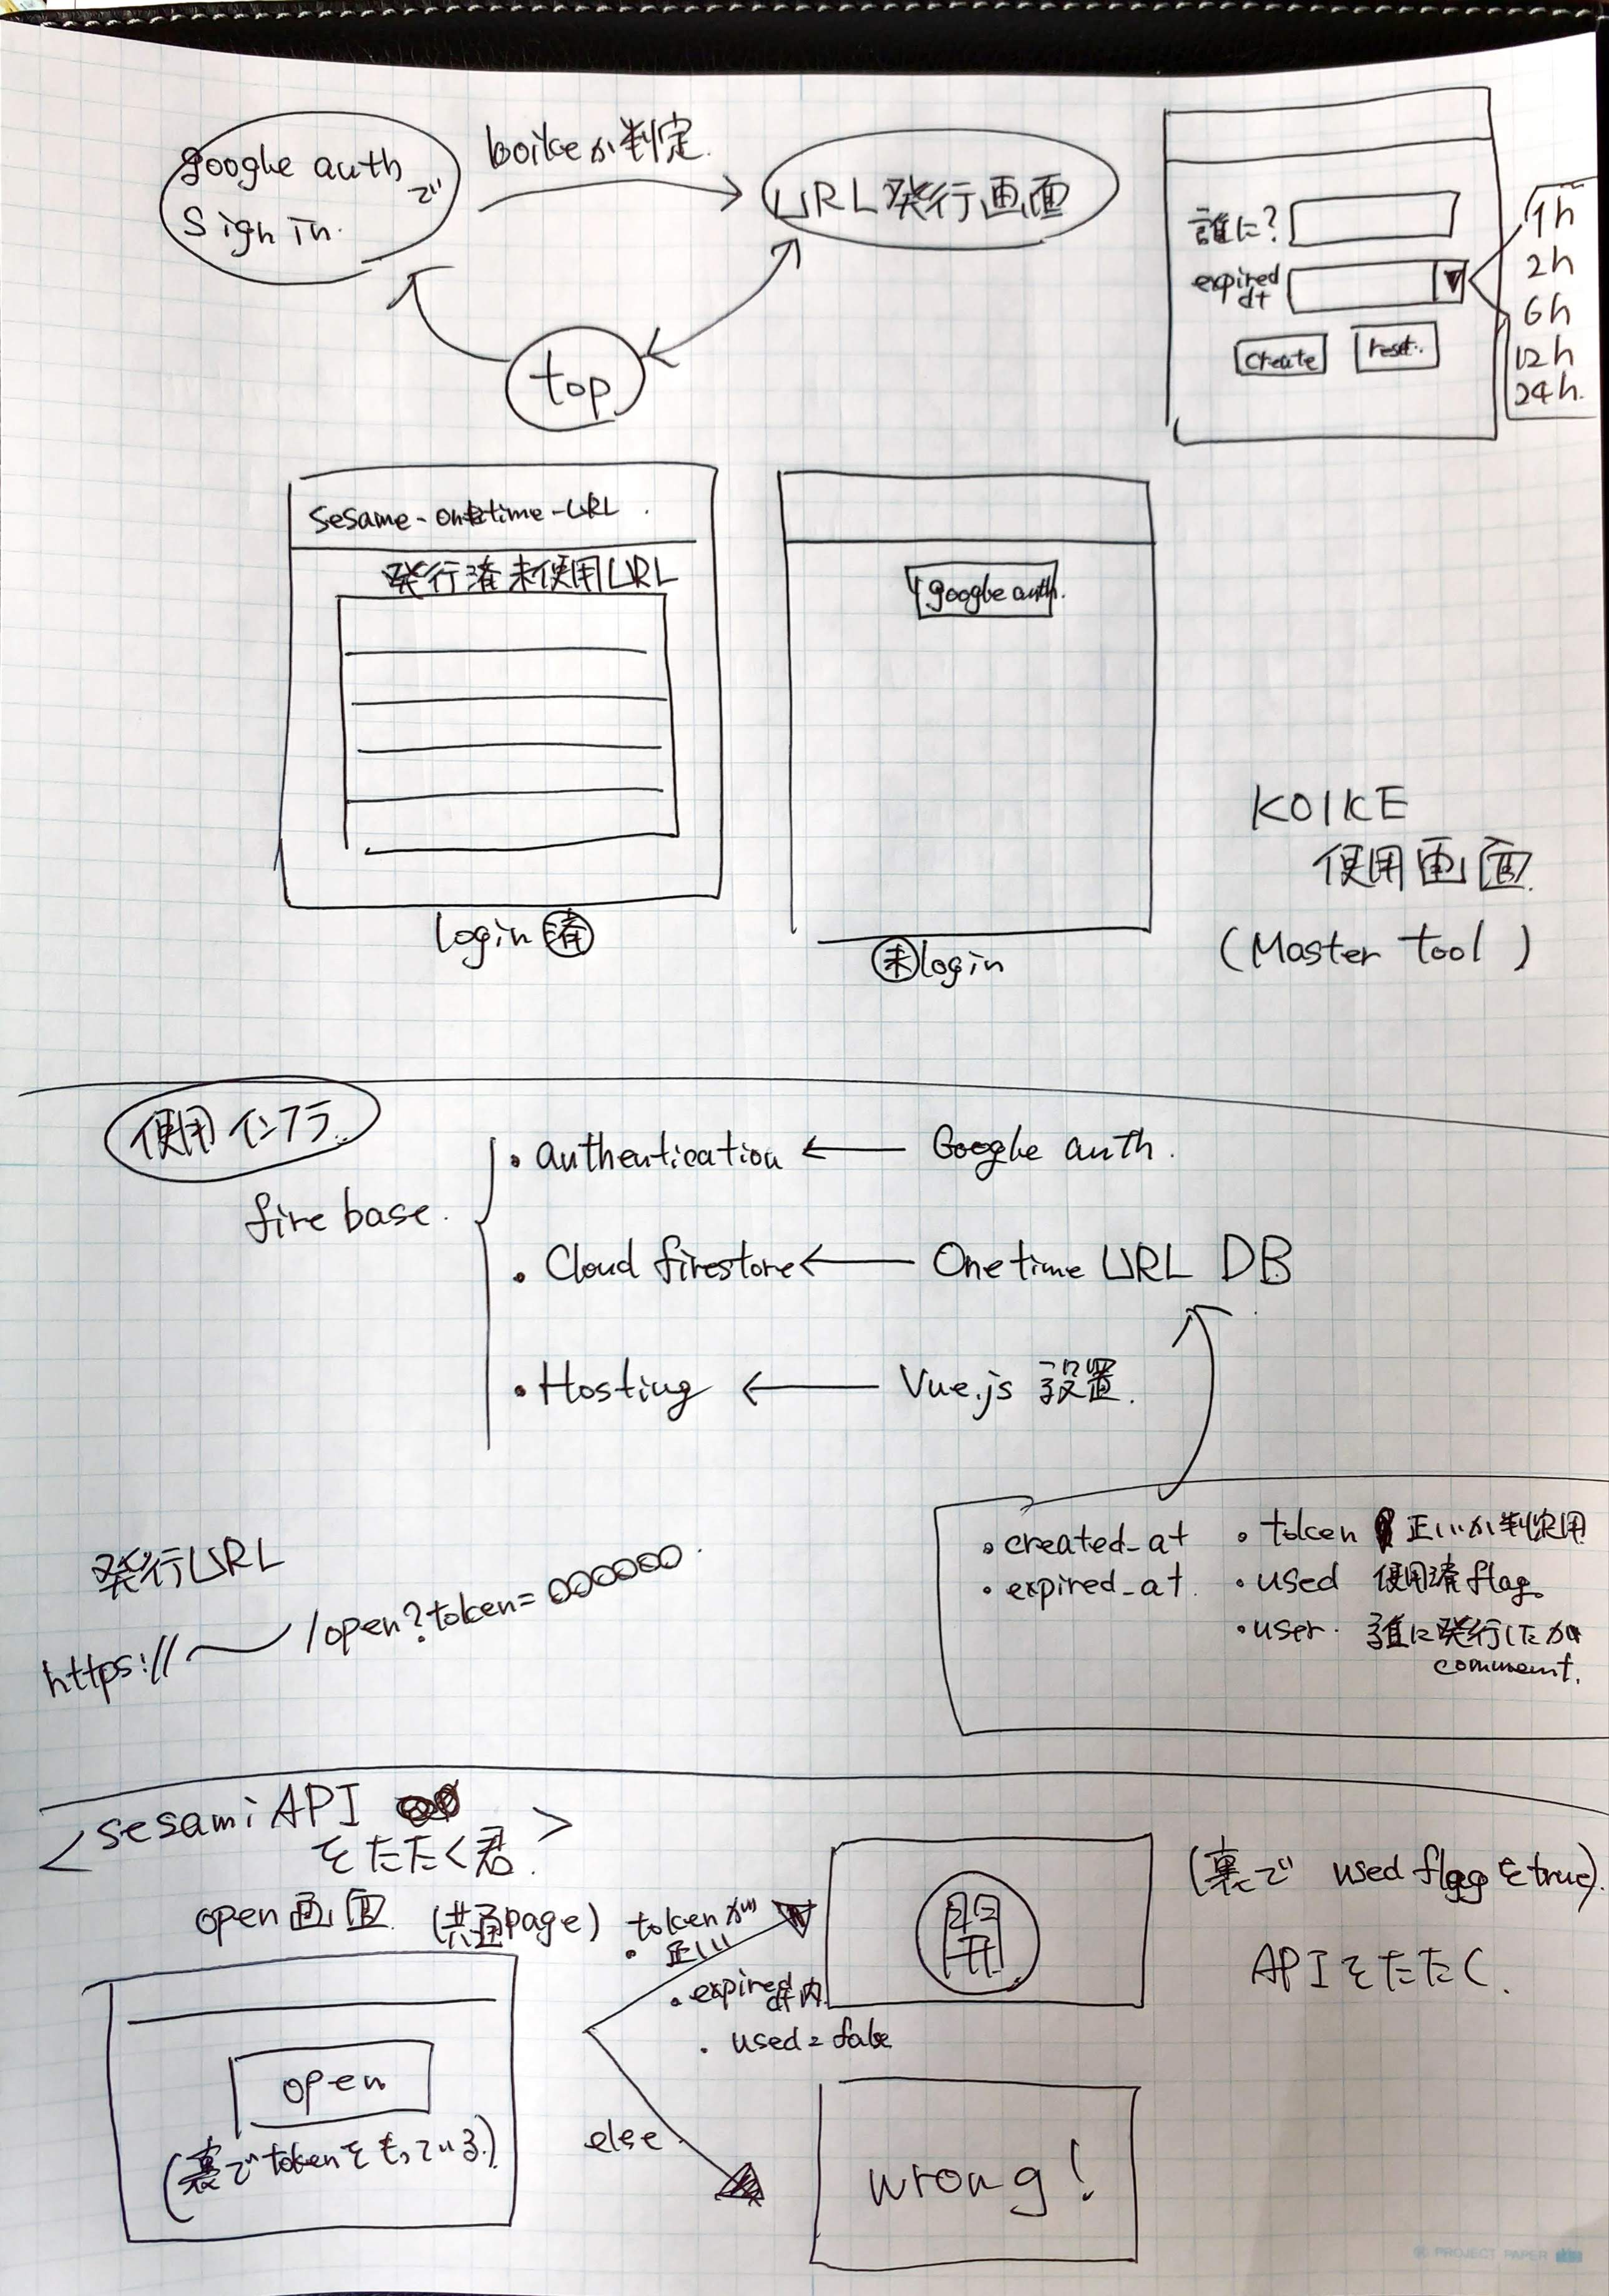 google auth で
Sign in.
koikeか判定.
URL発行画面
top
誰に?
expired
dt
create
reset.
1h
2h
6h
12h
24h.
sesame-onetime-URL
発行済未使用URL
login 済
google auth.
未login
KOIKE
使用画面
(Master tool)
使用インフラ
firebase.
・authentication ← Google auth.
・Cloud firestore ← Onetime URL DB
・Hosting ← Vue.js 設置.
・created_at
・expired_at
・token 正しいか判定用
・used 使用済flag
・user. 誰に発行したか
comment.
発行URL
https://〜/open?token=○○○○○○
<sesami API
をたたく君.>
open画面 (共通page)
open
(裏でtokenをもっている.)
・tokenが
正しい
・expired
dt内
・used = false
else
開
(裏で used flagをtrue).
APIをたたく.
wrong!
PROJECT PAPER